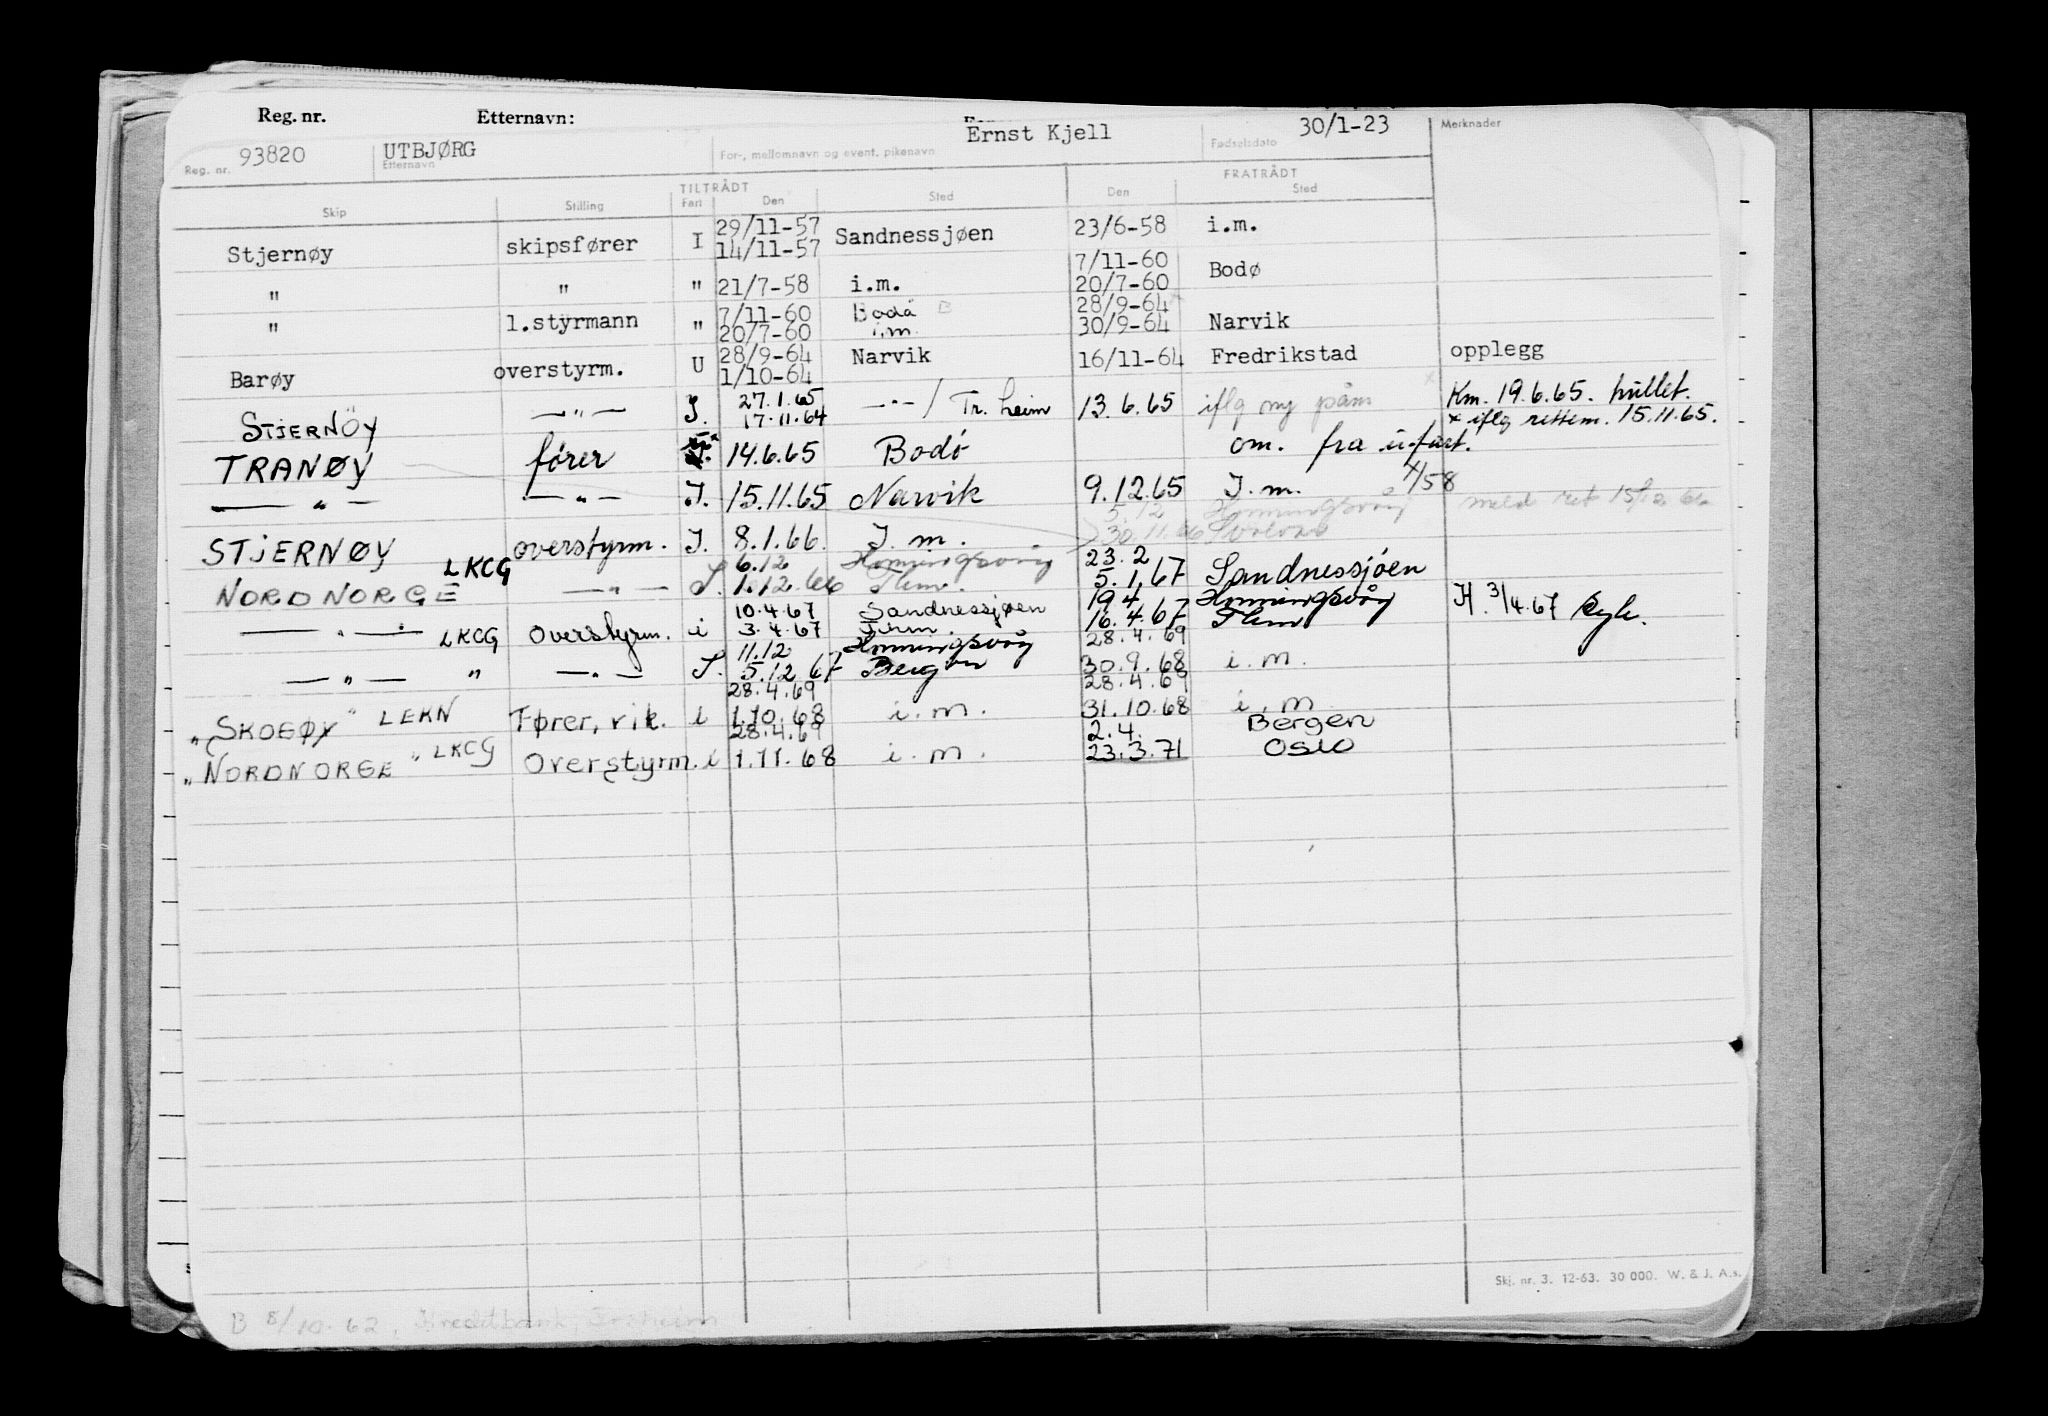 Reg. nr. Etternavn:
Reg. nr. 93820 UTBJØRG Etternavn For-, mellomnavn og event. pikenavn Ernst Kjell Fødselsdato 30/1-23 Merknader
TILTRÅDT FRATRÅDT
Skip Stilling Fart Den Sted Den Sted
29/11-57
Stjernøy skipsfører I 14/11-57 Sandnessjøen 23/6-58 i.m.
7/11-60
" " " 21/7-58 i.m. 20/7-60 Bodø
7/11-60 Bodø B 28/9-64
" 1.styrmann " 20/7-60 i.m. 30/9-64 Narvik
28/9-64
Barøy overstyrm. U 1/10-64 Narvik 16/11-64 Fredrikstad opplegg
27.1.65
STJERNÖY — " — I. 17.11.64 — " — / Tr. heim 13.6.65 iflg ny påm Km. 19.6.65. hullet.
x iflg rettem. 15.11.65.
TRANØY fører 14.6.65 Bodö om. fra u-fart.
— " — — " — I. 15.11.65 Narvik 9.12.65 I. m. 4/58
5.12 Honningsvåg meld ret
30.11.66 Svolvær
STJERNØY overstyrm. I. 8.1.66. I. m.
6.12 Honningsvåg 23.2
NORDNORGE LKCG — " — I. 1.12.66 Thm. 5.1.67 Sandnessjöen
10.4.67 Sandnessjøen 19.4 Honningsvåg
— " — LKCG Overstyrm. i 3.4.67 Thm. 16.4.67 Thm H. 3/4.67
11.12 Honningsvåg 28.4.69
— " — " — " — I. 5.12.67 Bergen 30.9.68 i.m.
28.4.69 28.4.69
" SKOGØY " LEKN Fører, vik. i 1.10.68 i.m. 31.10.68 i.m
28.4.69 2.4. Bergen
" NORDNORGE " LKCG Overstyrm. i 1.11.68 i.m. 23.3.71 Oslo
Skj. nr. 3. 12-63. 30 000. W. & J. A.s.
B 8/10.62, Kreditbank, Trheim